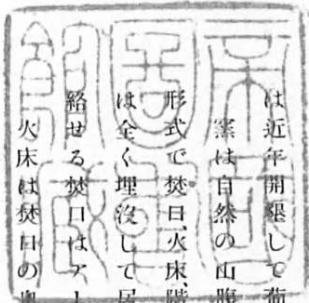 は近年開墾して葡
窯は自然の山腹
形式で焚口、火床、階
は全く埋没して居
絡せる焚口はアー
火床は焚口の